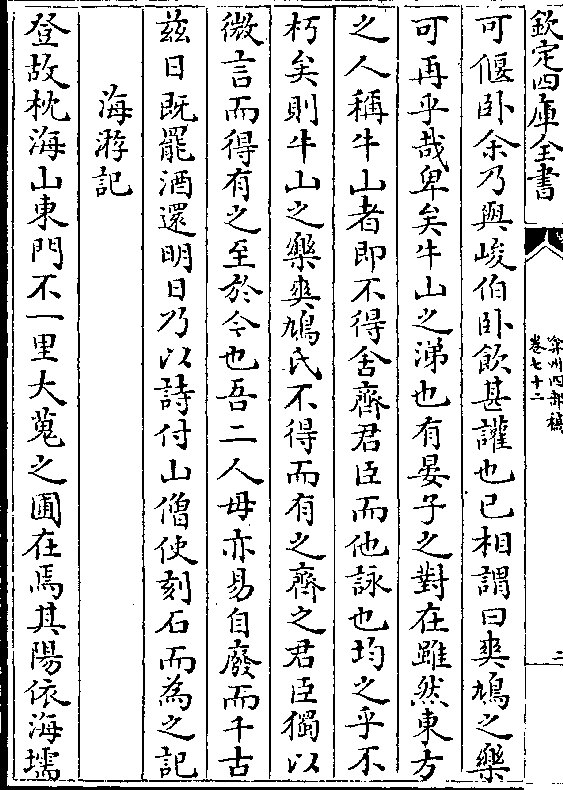 欽定四庫全書
弇州四部稿
卷七十二
二
可偃卧余乃與峻伯卧飲甚讙也已相謂曰爽鳩之樂
可再乎哉卑矣牛山之涕也有晏子之對在雖然東方
之人稱牛山者即不得舍齊君臣而他詠也均之乎不
朽矣則牛山之樂爽鳩氏不得而有之齊之君臣獨以
微言而得有之至於今也吾二人毋亦易自廢而千古
兹日既罷酒還明日乃以詩付山僧使刻石而為之記
海游記
登故枕海山東門不一里大蒐之圃在焉其陽依海壖